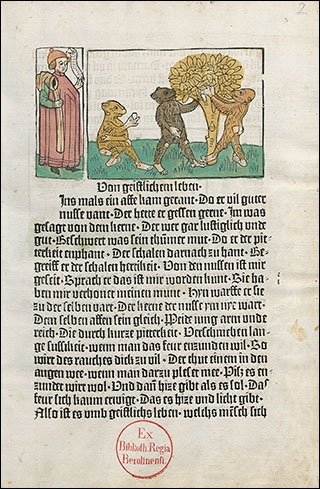 2
Von geistlichem leben.
Ins mals ein affe kam gerant. Do er vil guter
nusse vant. Der hette er gessen gerne. Im was
gesagt von dem kerne. Der wer gar lustiglich vnde
gut. Beschwert was sein thummer mut. Do er der pit-
terkeit enphant. Der schalen darnach zu hant. Be-
greiff er der schalen hertikeit. Von den nussen ist mir
geseit. Sprach er das ist mir worden kunt. Sie ha-
ben mir verhonet meinen munt. Hyn warffe er sie
zu der selben vart. Der kerne der nusse ym nye wart.
Dem selben affen sein gleich. Peide iung arm vnde
reich. Die durch kurze pitterkeit. Verschmehen lan-
ge sussikeit. wenn man das feur enzunden wil. So
wirt des rauches dick zu vil. Der thut einem in den
augen wee. wenn man darzu pleset mee. Pis es en-
zundet wirt wol. Vnd dan hize gibt als es sol. Das
feur sich kaum erwigt. Das es hize vnd licht gibt.
Also ist es vmb geistlichs leben. welchs mẽsch sich
Ex
Biblioth. Regia
Berolinensi.